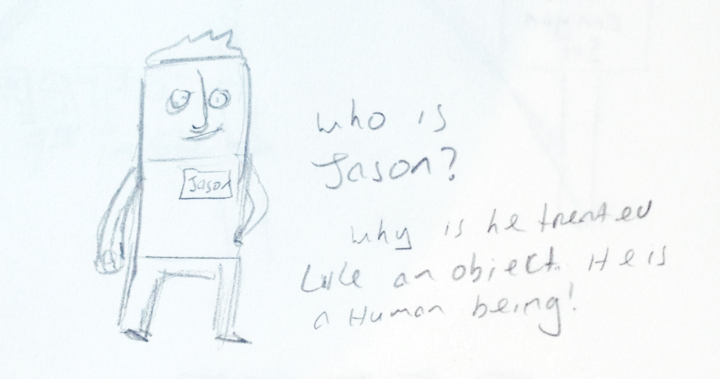 Jason
who is
Jason?
why is he treated
Like an object. He is
a Human being!